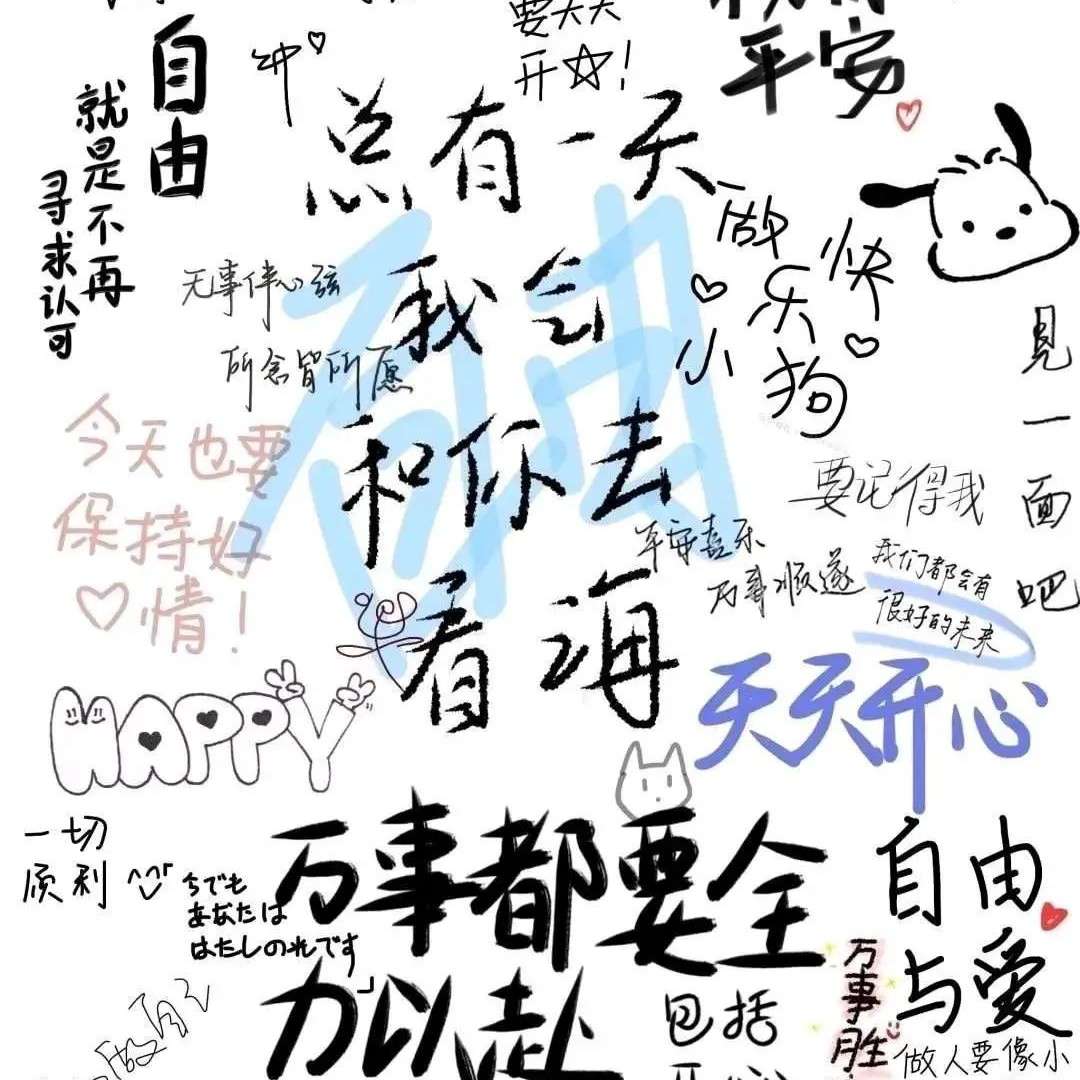 要天天
开☆!
平安
自由
就是不再
寻求认可
总有一天
我会
和你去
看海
自由
无事伴心弦
所念皆所愿
做
快
乐
小
狗
见一面吧
今天也要
保持好
♡情!
要记得我
平安喜乐
万事顺遂
我们都会有
很好的未来
天天开心
HAPPY
一切
顺利
今でも
あなたは
はたしの光です
万事都要全
力以赴
包括
开心
自由
与爱
万事胜
做人要像小